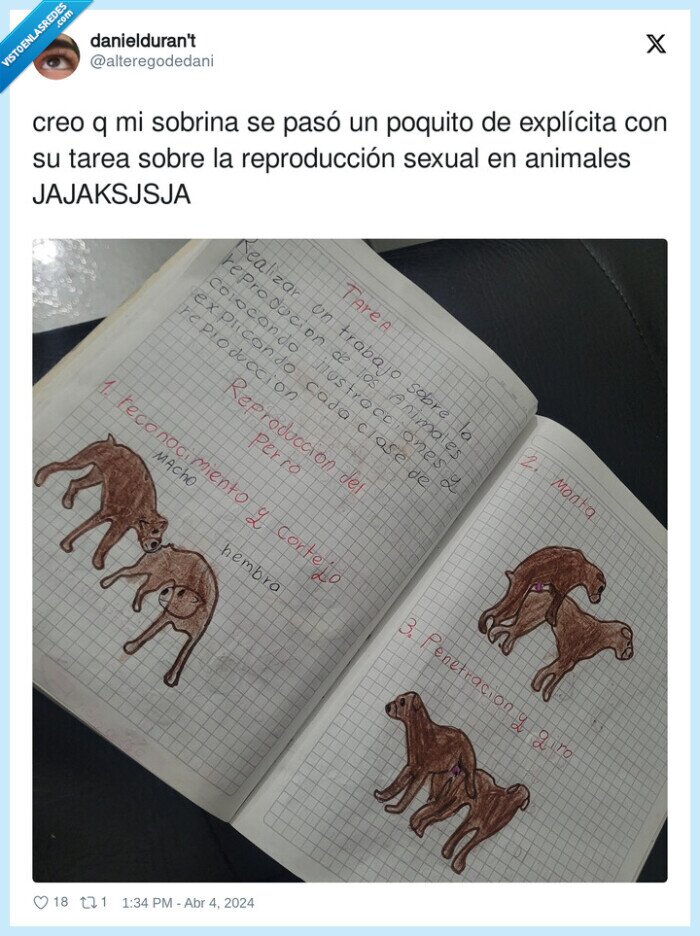 VISTOENLASREDES
.com
danielduran't
@alteregodedani
X
creo q mi sobrina se pasó un poquito de explícita con
su tarea sobre la reproducción sexual en animales
JAJAKSJSJA
TAreA
Realizar un trabajo sobre la
reproducion de los Animales
colocando ilustracciones y
explicando cada clase de
reproduccion
Reproduccion del
Perro
1. reconocimiento y cortejo
MACHO
hembra
2. Monta
3. Penetracion y giro
18
1
1:34 PM - Abr 4, 2024